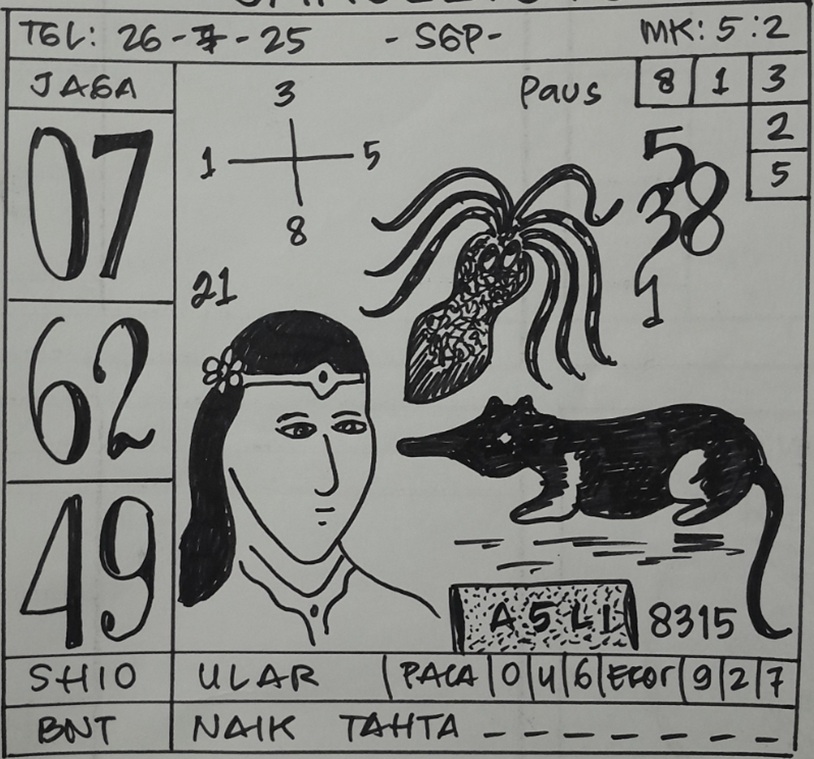 TGL: 26-7-25 -SGP- MK: 5:2
JAGA
07
62
49
3
1 5
8
21
Paus 8 1 3
2
5
5
38
1
A5LI 8315
SHIO ULAR PALA 0 4 6 EKOR 9 2 7
BNT NAIK TAHTA _ _ _ _ _ _ _ _